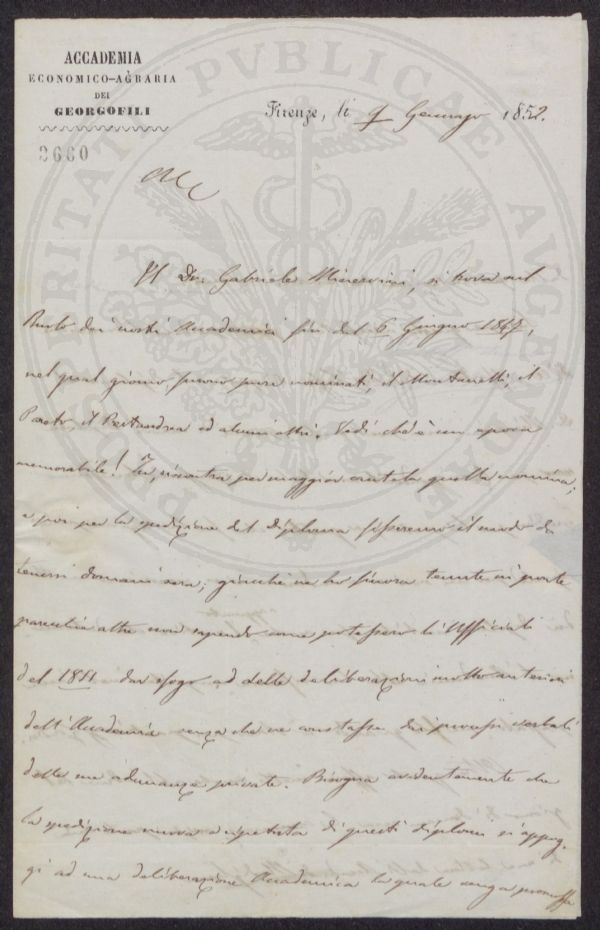 ACCADEMIA
ECONOMICO-AGRARIA
DEI
GEORGOFILI
3660
Firenze, li 9 Gennajo 1852.
PROSPERITATI PUBLICAE AUGENDAE
Il Dr. Gabriele Minervini, si trova nel
Ruolo dei nostri Accademici fin del 6 Giugno 1847,
nel qual giorno furono pure nominati, il Montanelli, il
Poeto, il ed alcuni altri. Vedi ch'è un epoca
memorabile! Tu, riscontra per maggior cautela quella nomina;
e poi per la spedizione del diploma fisseremo il modo di
tenersi domani sera; giacchè ne ho finora tenute in ponte
parecchie altre non sapendo come potessero li Ufficiali
del 1851 dar sfogo ad delle deliberazioni molto anteriori
dell'Accademia senza che ne constasse dai processi verbali
delle sue adunanze private. Bisogna evidentemente che
la spedizione nuova o ripetuta di questi diplomi si appog-
gi ad una deliberazione Accademica la quale senza